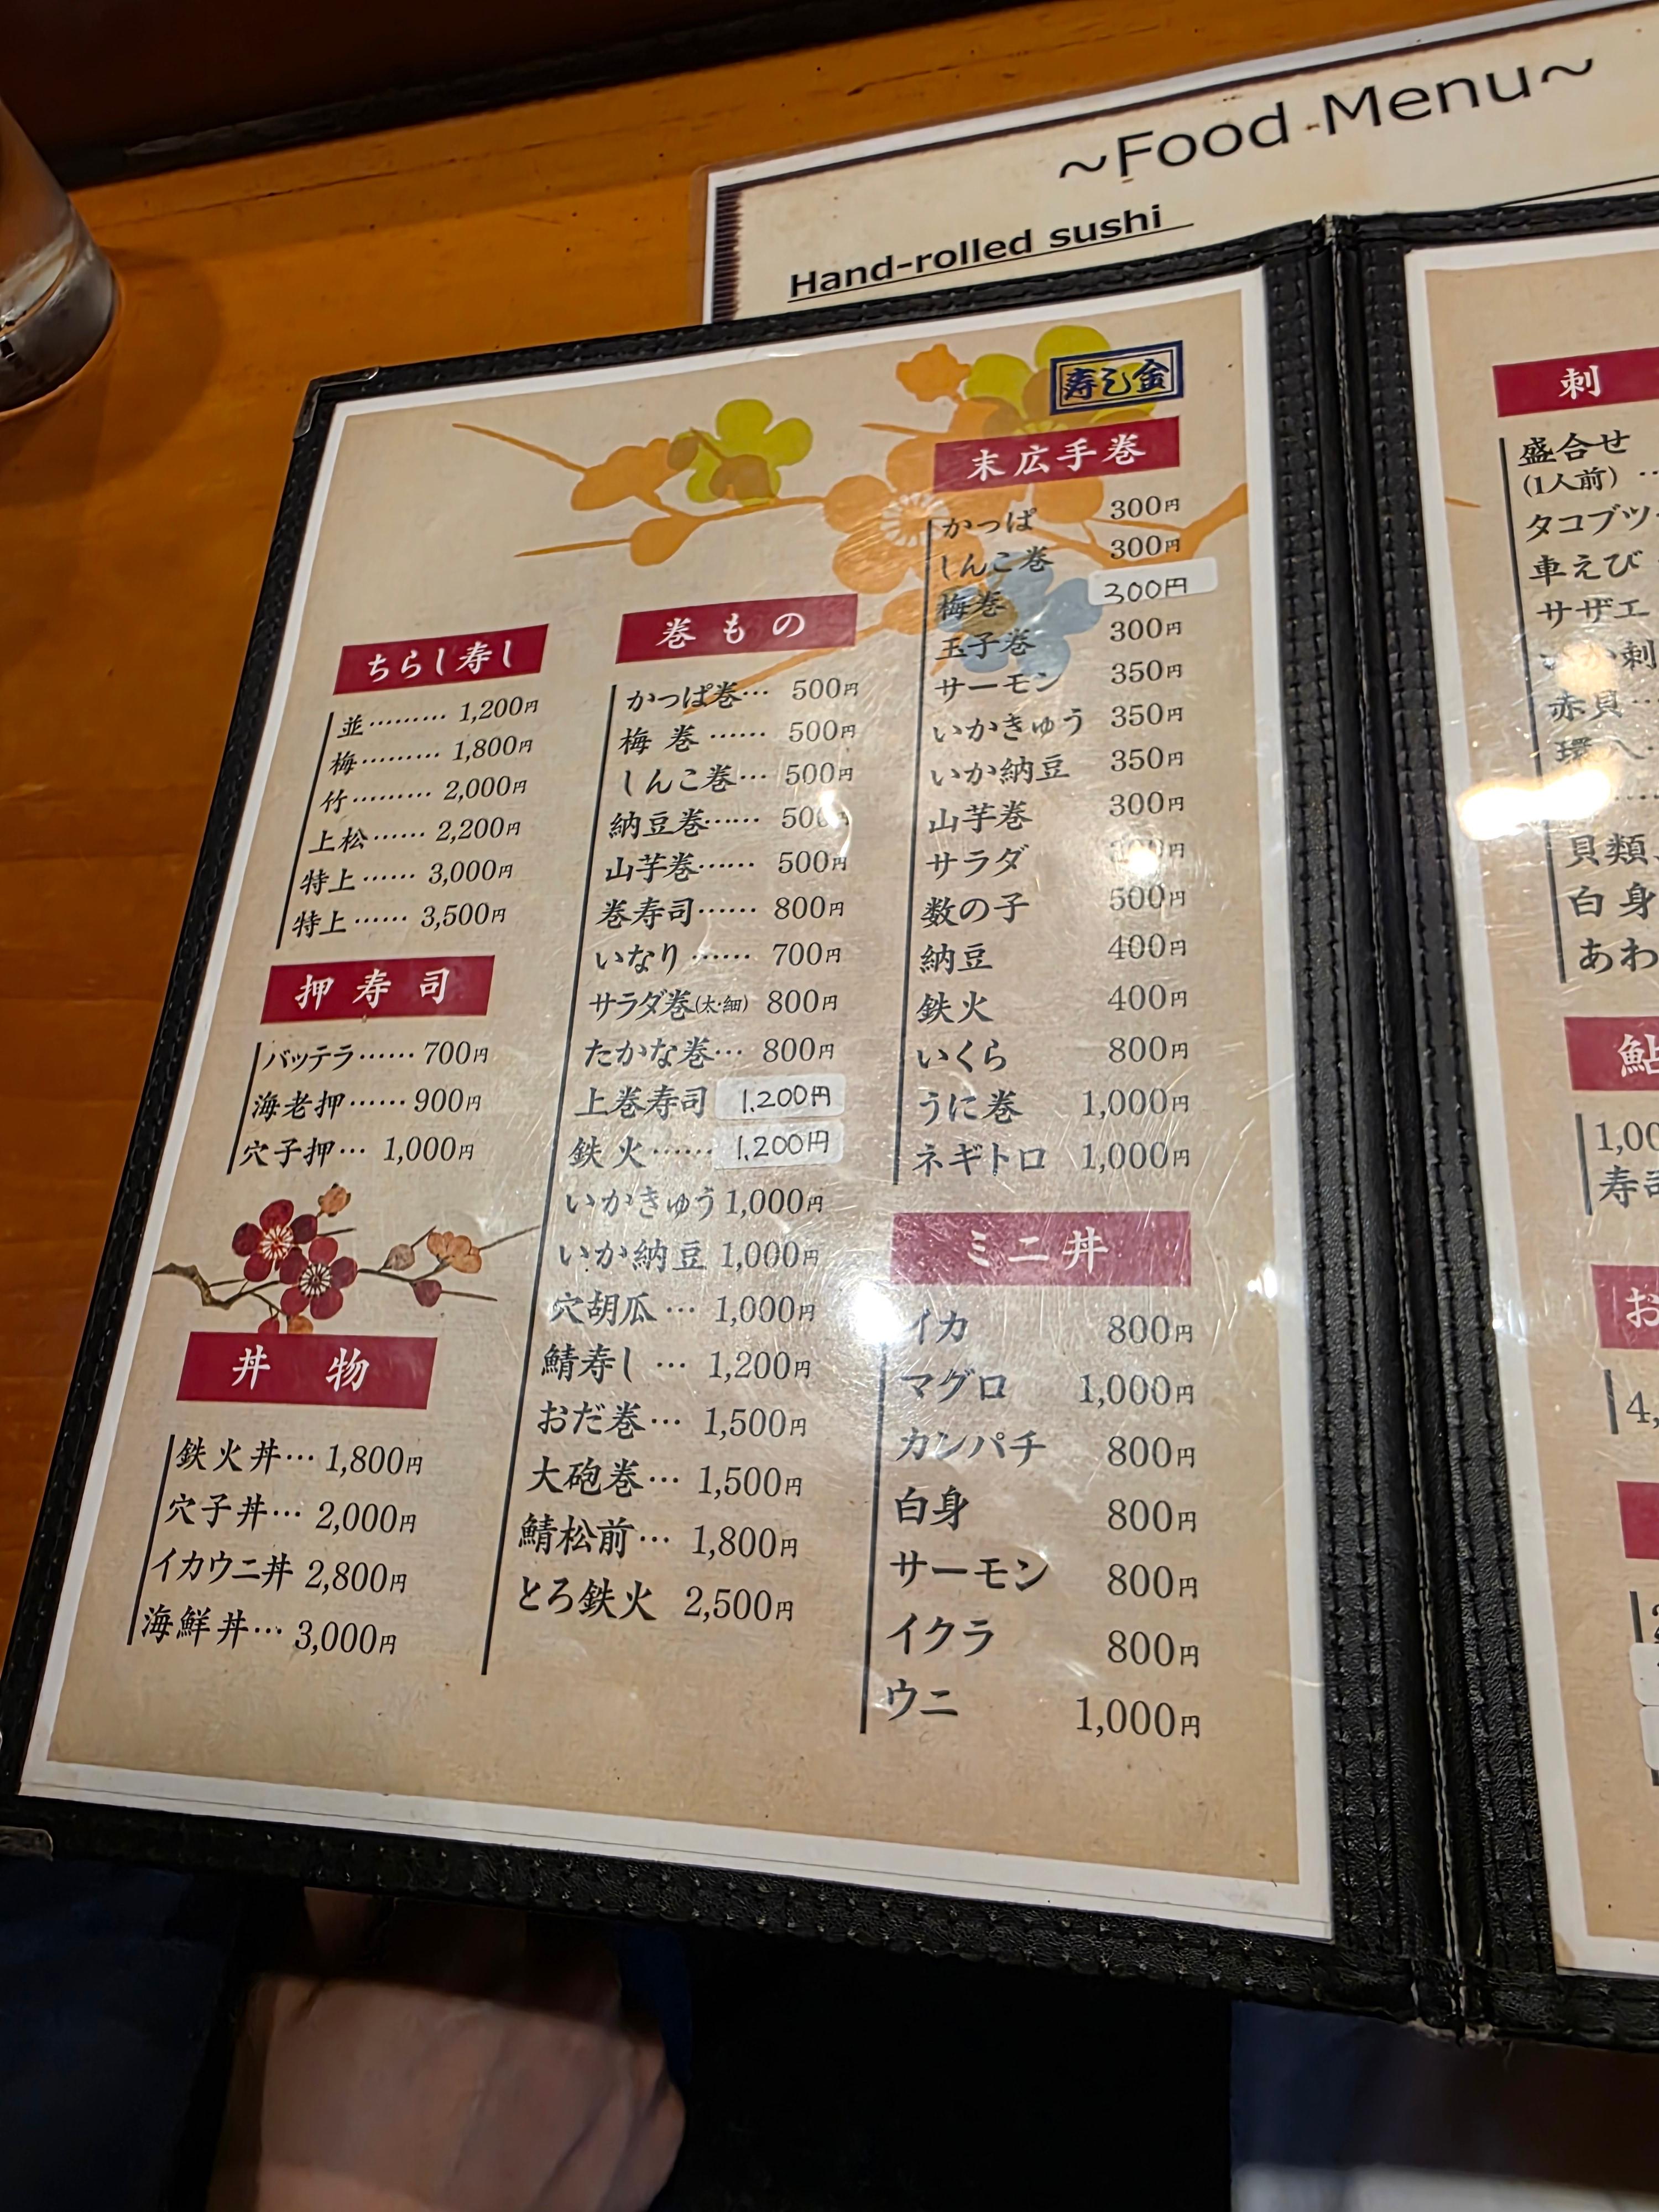 ~Food Menu~
Hand-rolled sushi
寿し金
ちらし寿し
並……… 1,200円
梅……… 1,800円
竹……… 2,000円
上松…… 2,200円
特上…… 3,000円
特上…… 3,500円
押寿司
バッテラ…… 700円
海老押…… 900円
穴子押… 1,000円
丼物
鉄火丼… 1,800円
穴子丼… 2,000円
イカウニ丼 2,800円
海鮮丼… 3,000円
巻もの
かっぱ巻… 500円
梅巻…… 500円
しんこ巻… 500円
納豆巻…… 500円
山芋巻…… 500円
巻寿司…… 800円
いなり…… 700円
サラダ巻(太・細) 800円
たかな巻… 800円
上巻寿司 1,200円
鉄火…… 1,200円
いかきゅう 1,000円
いか納豆 1,000円
穴胡瓜… 1,000円
鯖寿し… 1,200円
おだ巻… 1,500円
大砲巻… 1,500円
鯖松前… 1,800円
とろ鉄火 2,500円
末広手巻
かっぱ 300円
しんこ巻 300円
梅巻 300円
玉子巻 300円
サーモン 350円
いかきゅう 350円
いか納豆 350円
山芋巻 300円
サラダ
数の子 500円
納豆 400円
鉄火 400円
いくら 800円
うに巻 1,000円
ネギトロ 1,000円
ミニ丼
イカ 800円
マグロ 1,000円
カンパチ 800円
白身 800円
サーモン 800円
イクラ 800円
ウニ 1,000円
刺
盛合せ
(1人前)…
タコブツ
車えび
サザエ
赤貝…
貝類
白身
あわ
鮎
寿
お